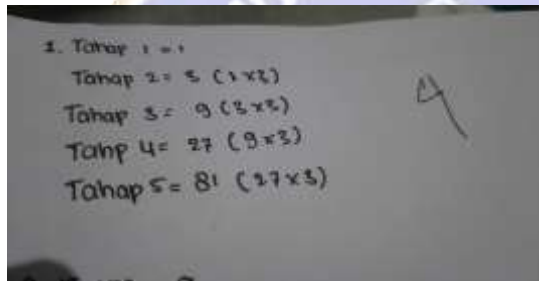 1. Tahap 1 = 1
Tahap 2 = 3 (1x3)
Tahap 3 = 9 (3x3)
Tahp 4 = 27 (9x3)
Tahap 5 = 81 (27x3)
4